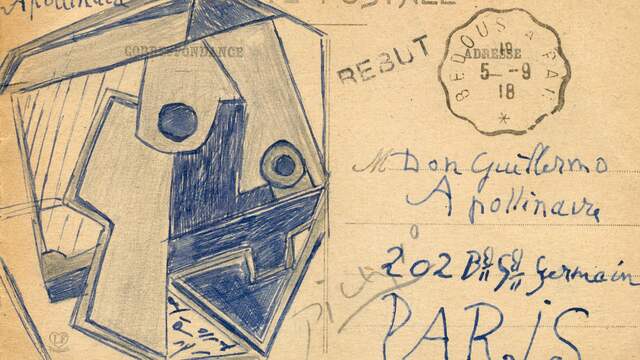 Apollinaire
CARTE POSTALE
CORRESPONDANCE
REBUT
BEDOUS A PAU
19
ADRESSE
5 -9
18
*
M Don Guillermo
Apollinaire
202 Bd St Germain
PARIS
Picasso